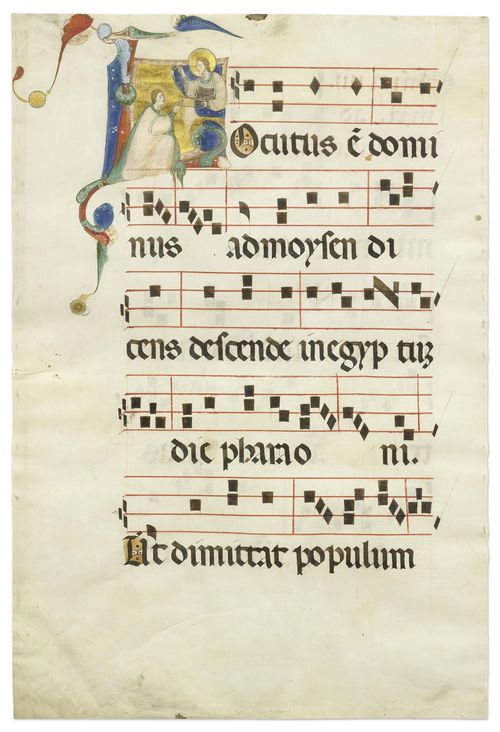 LOcutus ē domi
nus admoysen di
cens descende inegyp tuꝫ
dic pharao ni.
Ut dimittat populum